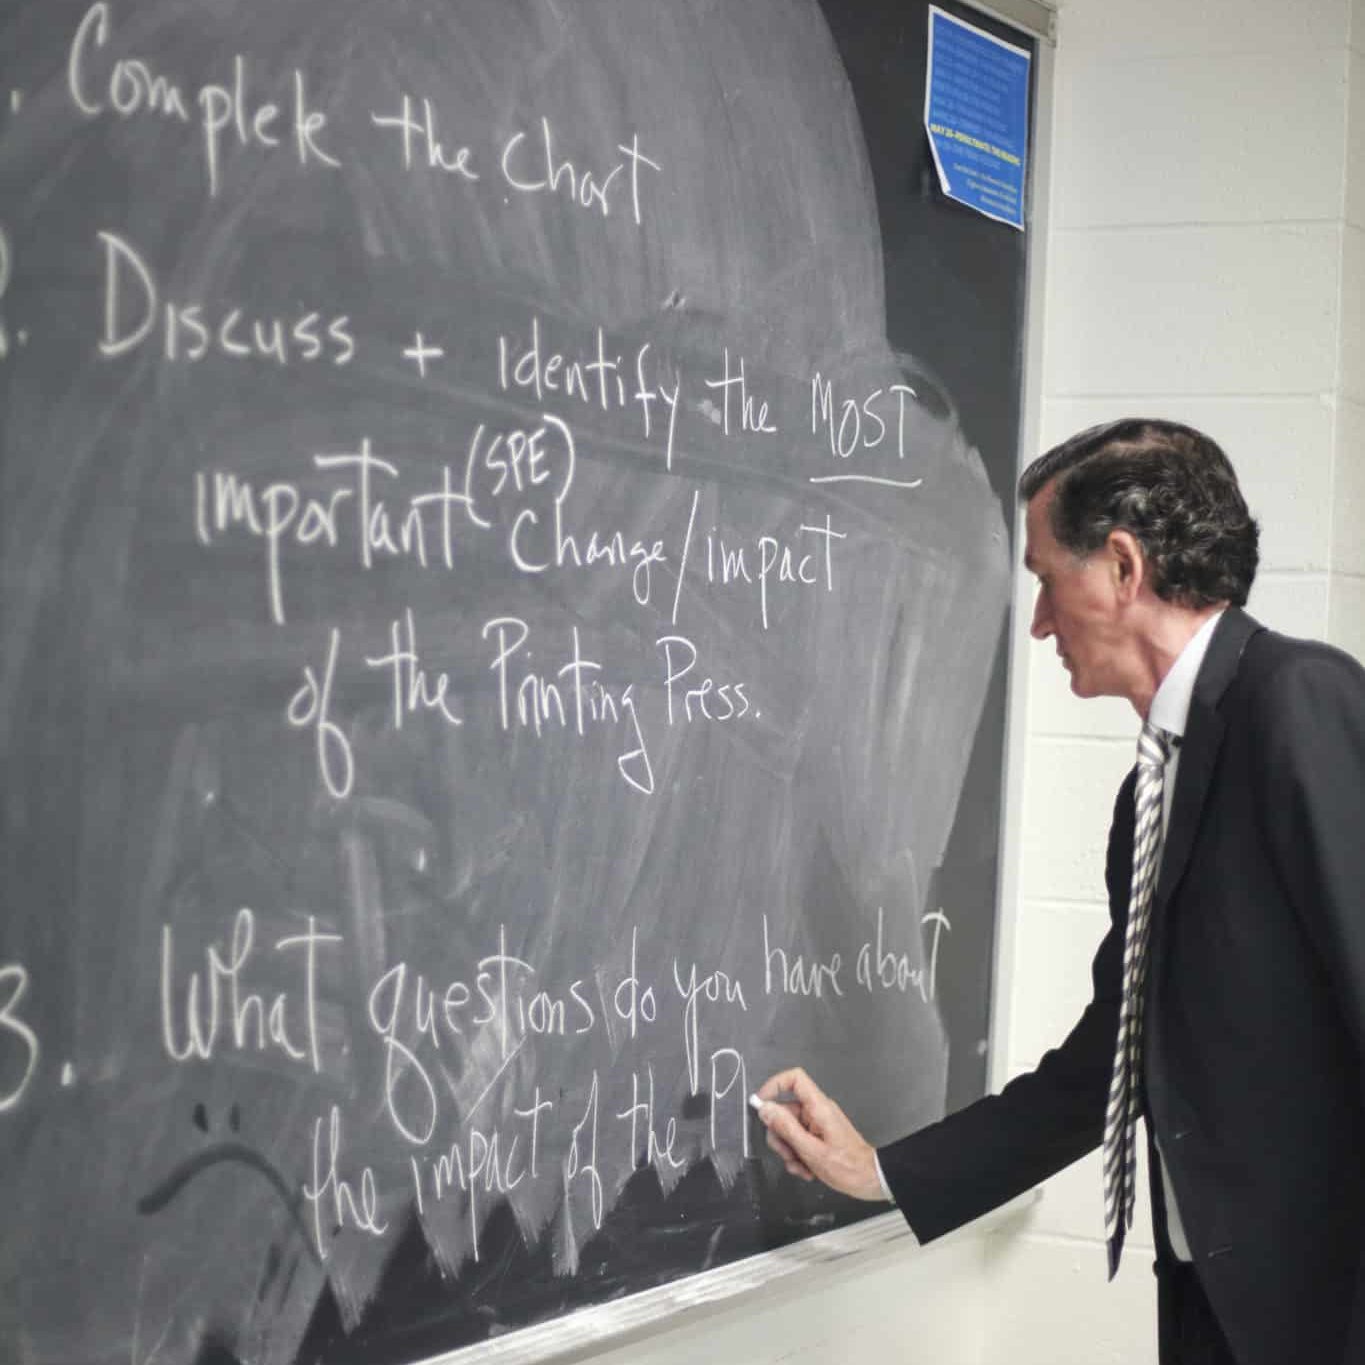 . Complete the Chart
2. Discuss + identify the MOST
important (SPE) Change/impact
of the Printing Press.
3. What questions do you have about
the impact of the P
MAY 20